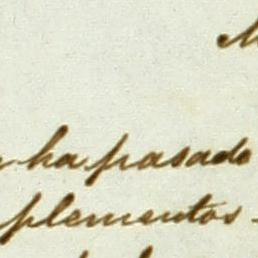 ha pasado
plementos-